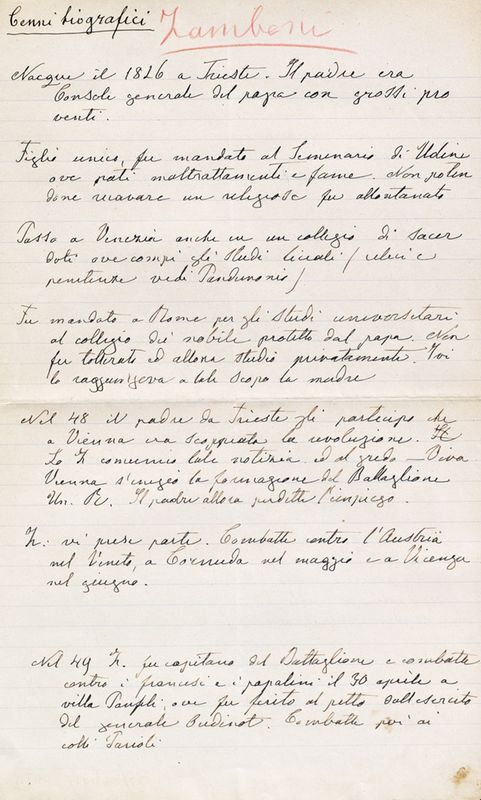 Cenni biografici Zamboni
Nacque il 1826 a Trieste. Il padre era
Console generale del papa con grossi pro
venti.
Figlio unico, fu mandato al Seminario di Udine
ove patì maltrattamenti e fame. Non poten
done ricavare un religioso fu allontanato
Passo a Venezia anche in un collegio di sacer
doti ove compì gli studi liceali (
penitenze vedi Pandemonio)
Fu mandato a Rome per gli studi universitari
al collegio dei nobili protetto dal papa. Non
fu tollerato ed allora studiò privatamente. Ivi
lo raggiungeva a tale scopo la madre
Nel 48 il padre da Trieste gli partecipò che
a Vienna era scoppiata la rivoluzione.
Lo Z comunicò tale notizia ed al grido — Viva
Vienna s'iniziò la formazione del Battaglione
Un. R. Il padre allora perdette l'impiego.
Z. vi prese parte. Combattè contro l'Austria
nel Veneto, a Cornuda nel maggio e a Vicenza
nel giugno.
Nel 49 Z. fu capitano del Battaglione e combattè
contro i francesi e i papalini il 30 aprile a
villa Panfili, ove fu ferito al petto dall'esercito
del generale Oudinot. Combattè poi ai
colli Parioli